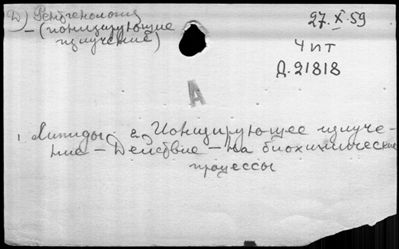 Д) Рентгенология
– (ионизирующие
излучение)
27.X.59
Ч ИТ
Д.21818
А
1 Липиды 2, Ионизирующее излуче-
ние – Действие – на биохимические
процессы